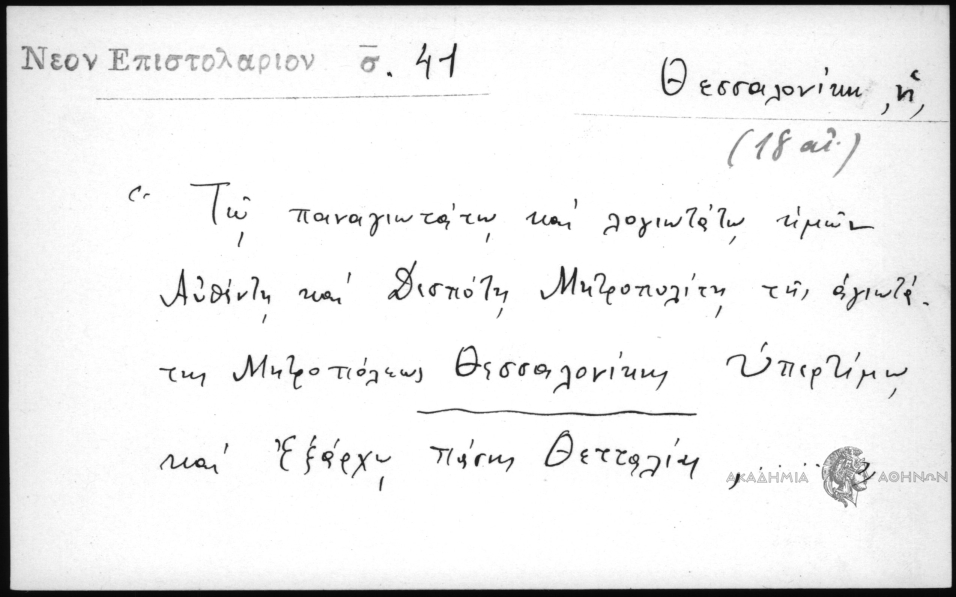 Νεον Επιστολαριον σ̅. 41
Θεσσαλονίκη, ἡ,
(18 αἰ.)
"Τῷ παναγιωτάτῳ καὶ λογιωτάτῳ ἡμῶν
Αὐθέντῃ καὶ Δεσπότῃ Μητροπολίτῃ τῆς ἁγιωτά-
της Μητροπόλεως Θεσσαλονίκης Ὑπερτίμῳ
καὶ Ἐξάρχῳ πάσης Θετταλίας, ....."
ΑΚΑΔΗΜΙΑ ΑΘΗΝΩΝ